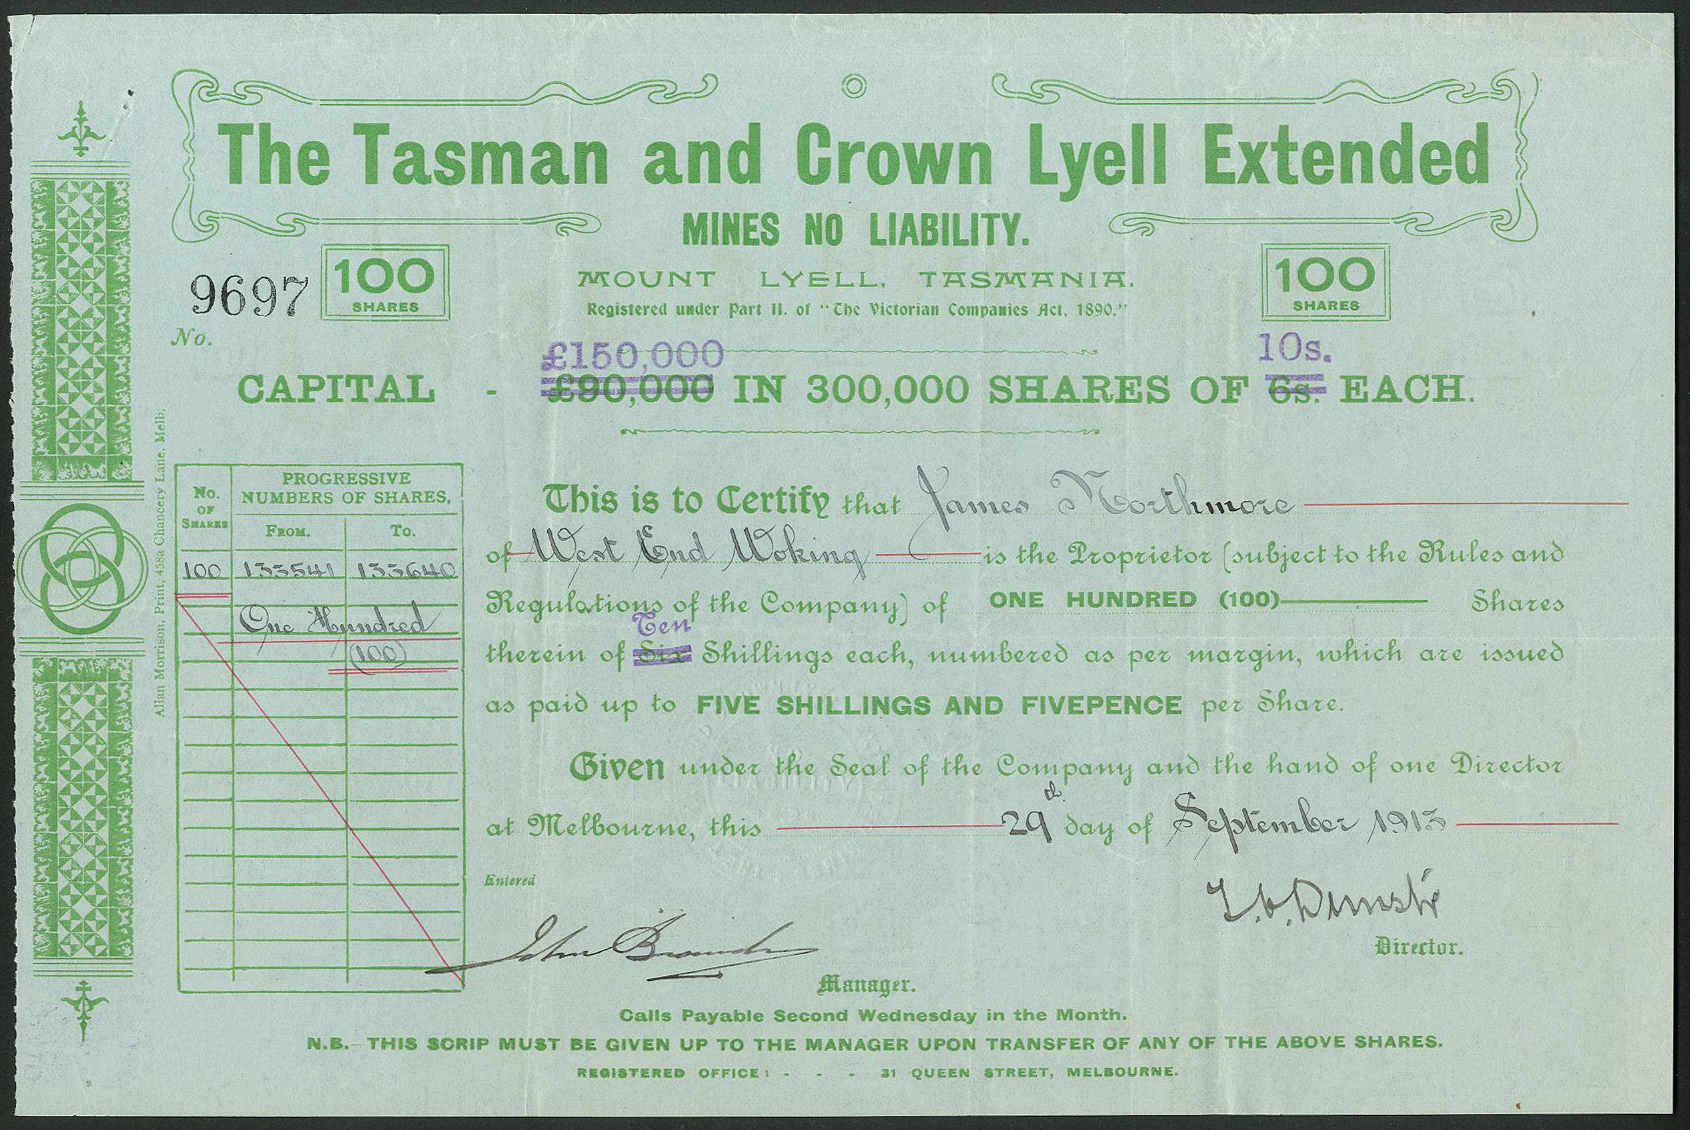 The Tasman and Crown Lyell Extended
MINES NO LIABILITY.
MOUNT LYELL, TASMANIA.
Registered under Part II. of "The Victorian Companies Act, 1890."
9697
No.
100 SHARES
100 SHARES
£150,000 10s.
CAPITAL - £90,000 IN 300,000 SHARES OF 6s. EACH.
No. OF SHARES
PROGRESSIVE NUMBERS OF SHARES,
FROM. TO.
100 133541 133640
One Hundred
(100)
Allan Morrison, Print, 458a Chancery Lane, Melb.
This is to Certify that James Northmore
of West End Woking is the Proprietor (subject to the Rules and
Regulations of the Company) of ONE HUNDRED (100) Shares
Ten
therein of Six Shillings each, numbered as per margin, which are issued
as paid up to FIVE SHILLINGS AND FIVEPENCE per Share.
Given under the Seal of the Company and the hand of one Director
at Melbourne, this 29th day of September 1913
Entered
John
Director.
Manager.
Calls Payable Second Wednesday in the Month.
N.B.—THIS SCRIP MUST BE GIVEN UP TO THE MANAGER UPON TRANSFER OF ANY OF THE ABOVE SHARES.
REGISTERED OFFICE: - - - 31 QUEEN STREET, MELBOURNE.